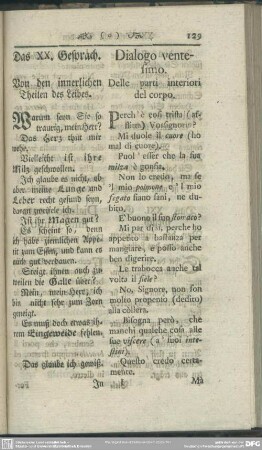 129
Das XX. Gespräch.
Von den innerlichen
Theilen des Leibes.
Warum seyn Sie so
traurig, mein Herr?
Das Herz thut mir
wehe.
Vielleicht ist Ihre
Milz geschwollen.
Ich glaube es nicht,
aber meine Lunge und
Leber recht gesund seyn,
daran zweifele ich.
Ist ihr Magen gut?
Es scheint so, denn
ich habe ziemlichen Appe-
tit zum Essen, und kann es
auch gut verdauen.
Steigt ihnen auch zu-
weilen die Galle über?
Nein, mein Herr, ich
bin nicht sehr zum Zorn
geneigt.
Es muß doch etwas ih-
rem Eingeweide fehlen.
Das glaube ich gewiß.
In
Dialogo vente-
simo.
Delle parti interiori
del corpo.
Perch' è così tristo (af-
flitto) Vossignoria?
Mi duole il cuore (ho
mal di cuore).
Puol' esser che la sua
milza è gonfia.
Non lo credo, ma se
'l mio polmone e 'l mio
fegato siano sani, ne du-
bito.
E' buono il suo stomaco?
Mi par di sì, perche ho
appetito a bastanza per
mangiare, e posso anche
ben digerire.
Le trabocca anche tal
volta il fiele?
No, Signore, non son
molto propenio (dedito)
alla collera.
Bisogna però, che
manchi qualche cosa alle
sue viscere (a' suoi inte-
stini).
Questo credo certa-
mente.
Ma